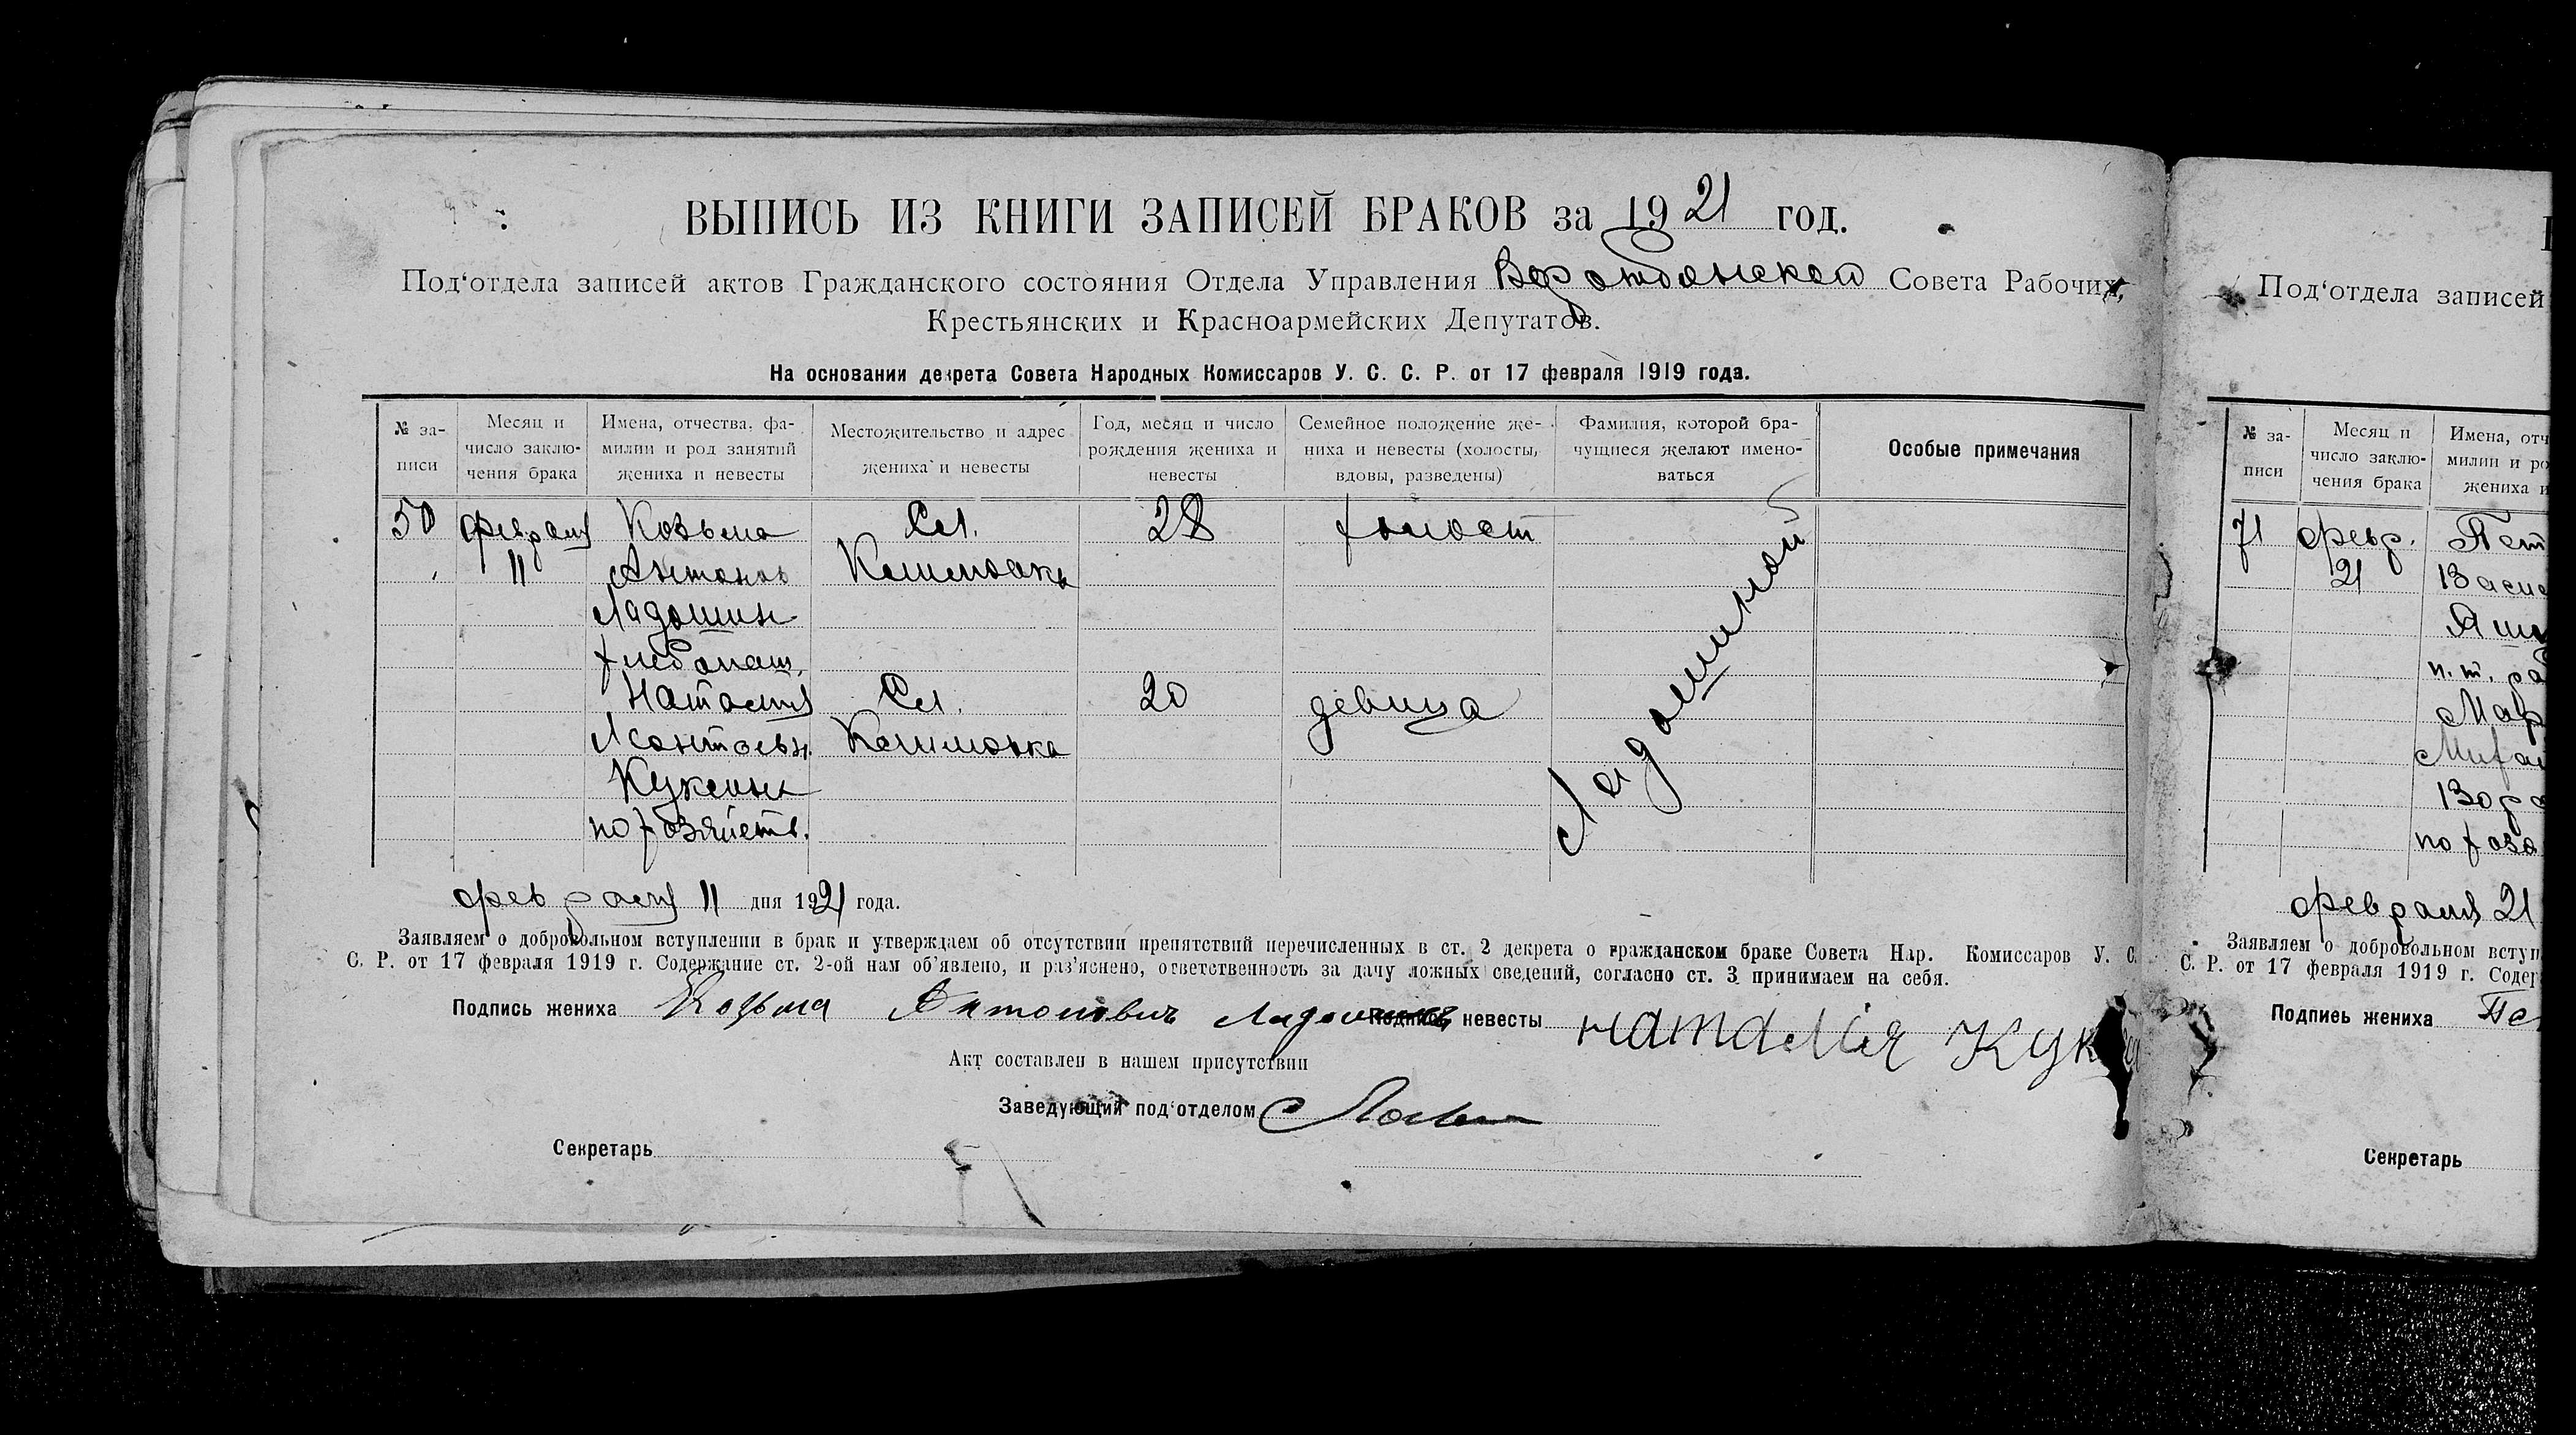 ВЫПИСЬ ИЗ КНИГИ ЗАПИСЕЙ БРАКОВ за 1921 год.
Под‘отдела записей актов Гражданского состояния Отдела Управления Совета Рабочих,
Крестьянских и Красноармейских Депутатов.
На основании декрета Совета Народных Комиссаров У. С. С. Р. от 17 февраля 1919 года.
№ за-писи
Месяц и число заклю-чения брака
Имена, отчества, фа-милии и род занятий жениха и невесты
Местожительство и адрес жениха и невесты
Год, месяц и число рождения жениха и невесты
Семейное положение же-ниха и невесты (холосты, вдовы, разведены)
Фамилия, которой бра-чущиеся желают имено-ваться
Особые примечания
50 февраля Козьма Сл. 28 холост
11 Антонов
Ладошин
хлебопаш.
Сл. 20 девица
Леонтьевн.
по хозяйств.
Ладошиной
февраля 11 дня 1921 года.
Заявляем о добровольном вступлении в брак и утверждаем об отсутствии препятствий перечисленных в ст. 2 декрета о гражданском браке Совета Нар. Комиссаров У. С.
С. Р. от 17 февраля 1919 г. Содержание ст. 2-ой нам об’явлено, и раз’яснено, ответственность за дачу ложных сведений, согласно ст. 3 принимаем на себя.
Подпись жениха Козьма Антонович Ладошинъ Подпись невесты Наталія
Акт составлен в нашем присутствии
Заведующий под‘отделом
Секретарь
Под‘отдела записей
№ за-писи
Месяц и число заклю-чения брака
Имена, отч
милии и ро
жениха и
71 февр. Пет
21 Васи
Мар
Миха
по хозя
февраля 21
Заявляем о добровольном вступ
С. Р. от 17 февраля 1919 г. Содер
Подпись жениха Пе
Секретарь